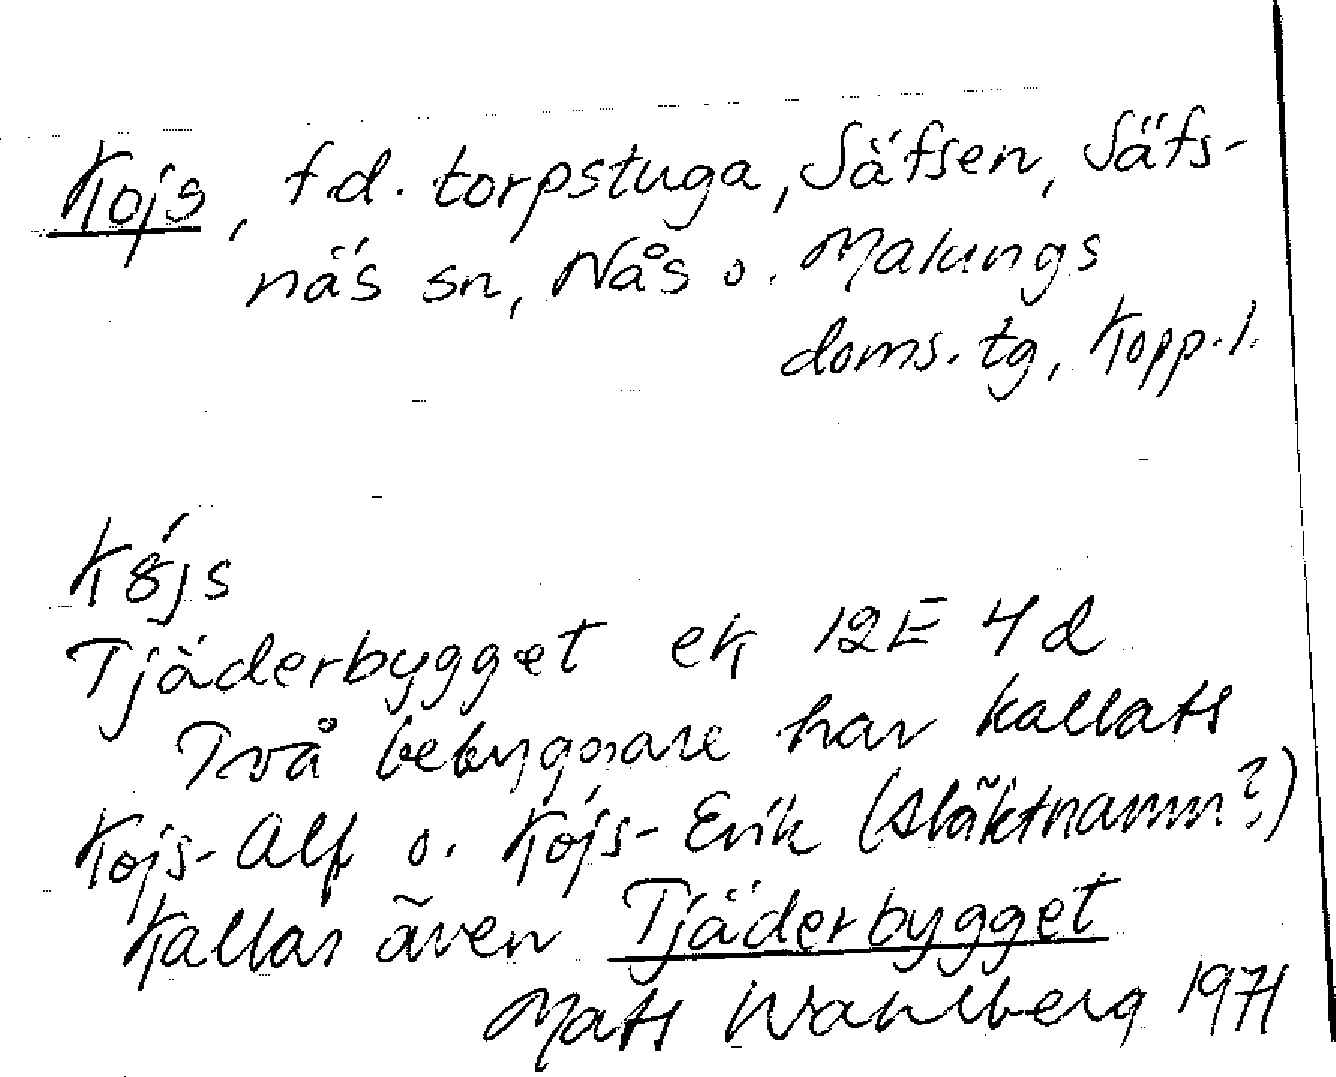 Kojs, f.d. torpstuga, Säfsen, Säfs-
näs sn, Nås o. Malungs
doms. tg, Kopp. l.
K8́js
Tjäderbygget ek 12E 4d
Två bebyggare har kallats
Kojs-Alf o. Kojs-Erik (släktnamn?)
Kallas även Tjäderbygget
Mats Wahlberg 1971